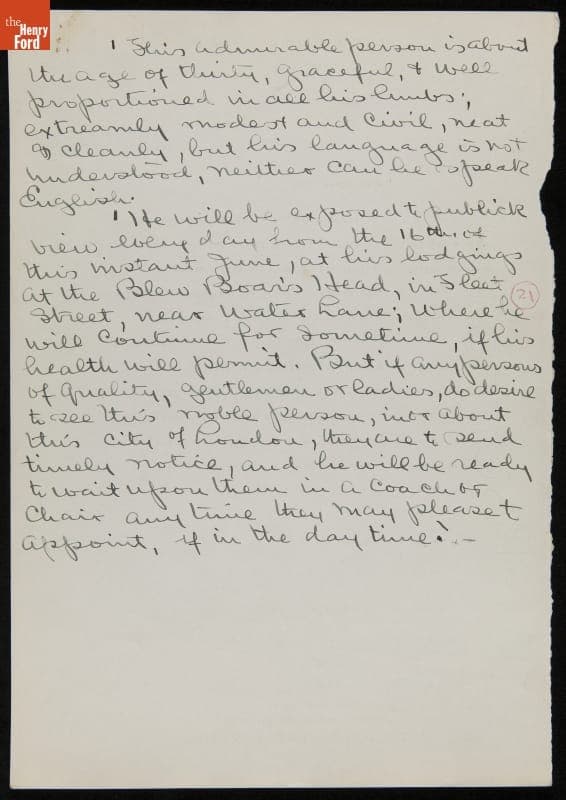 the
Henry
Ford
' This admirable person is about
the age of thirty, graceful, & well
proportioned in all his limbs;
extreamly modest and civil, neat
& cleanly, but his language is not
understood, neither can he speak
English.
' He will be exposed to publick
view every day from the 16th of
this instant June, at his lodgings
at the Blew Boar's Head, in Fleet
21
Street, near Water Lane; Where he
will continue for some time, if his
health will permit. But if any persons
of quality, gentlemen or ladies, do desire
to see this noble person, in or about
this city of London, they are to send
timely notice, and he will be ready
to wait upon them in a coach or
chair any time they may please t
appoint, if in the day time.' –